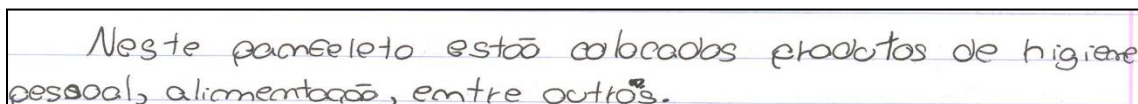 Neste pamfeleto estão colocados productos de higiene
pessoal, alimentação, emtre outros.